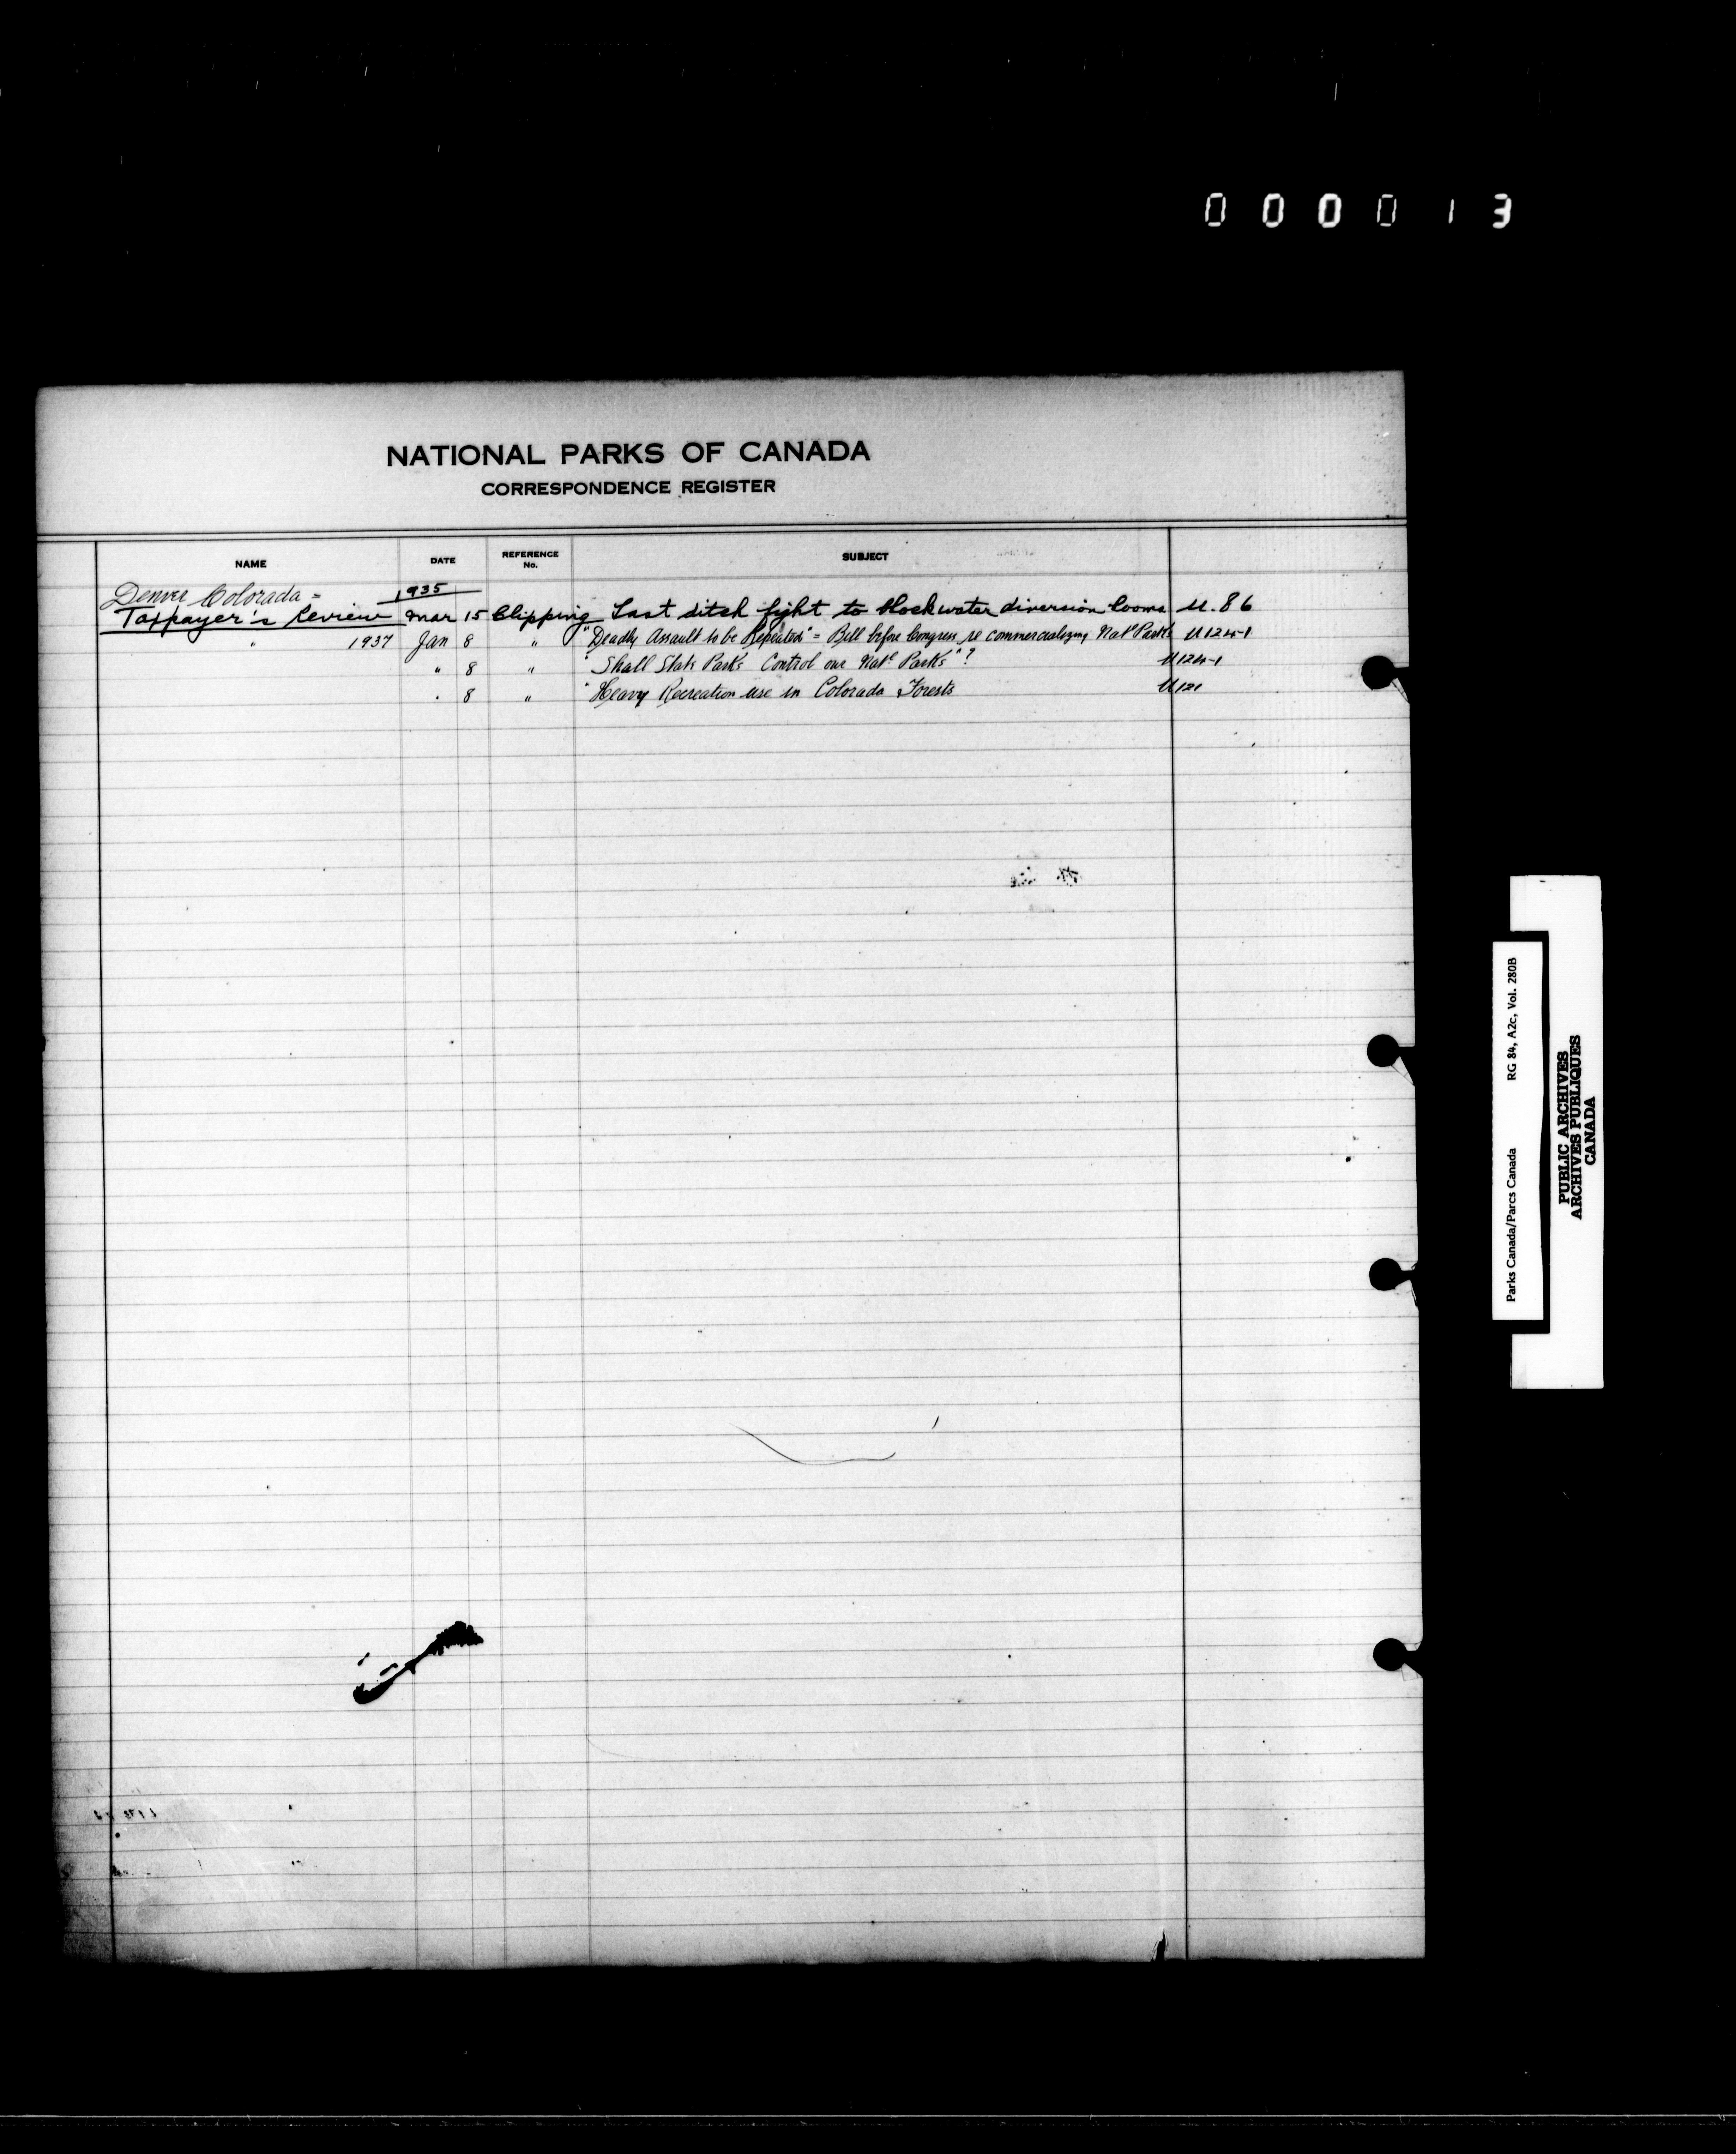 000013
NATIONAL PARKS OF CANADA
CORRESPONDENCE REGISTER
NAME DATE REFERENCE No. SUBJECT
Denver Colorada = 1935
Taxpayer's Review Mar 15 Clipping Last ditch fight to block water diversion looms U.86
" 1937 Jan 8 " "Deadly Assault to be Repeated" = Bill before Congress re commercializing Nat'l Parks U124-1
" 8 " "Shall State Parks Control our Nat'l Parks"? U124-1
" 8 " "Heavy Recreation use in Colorado Forests U121
Parks Canada/Parcs Canada RG 84, A2c, Vol. 280B
PUBLIC ARCHIVES
ARCHIVES PUBLIQUES
CANADA